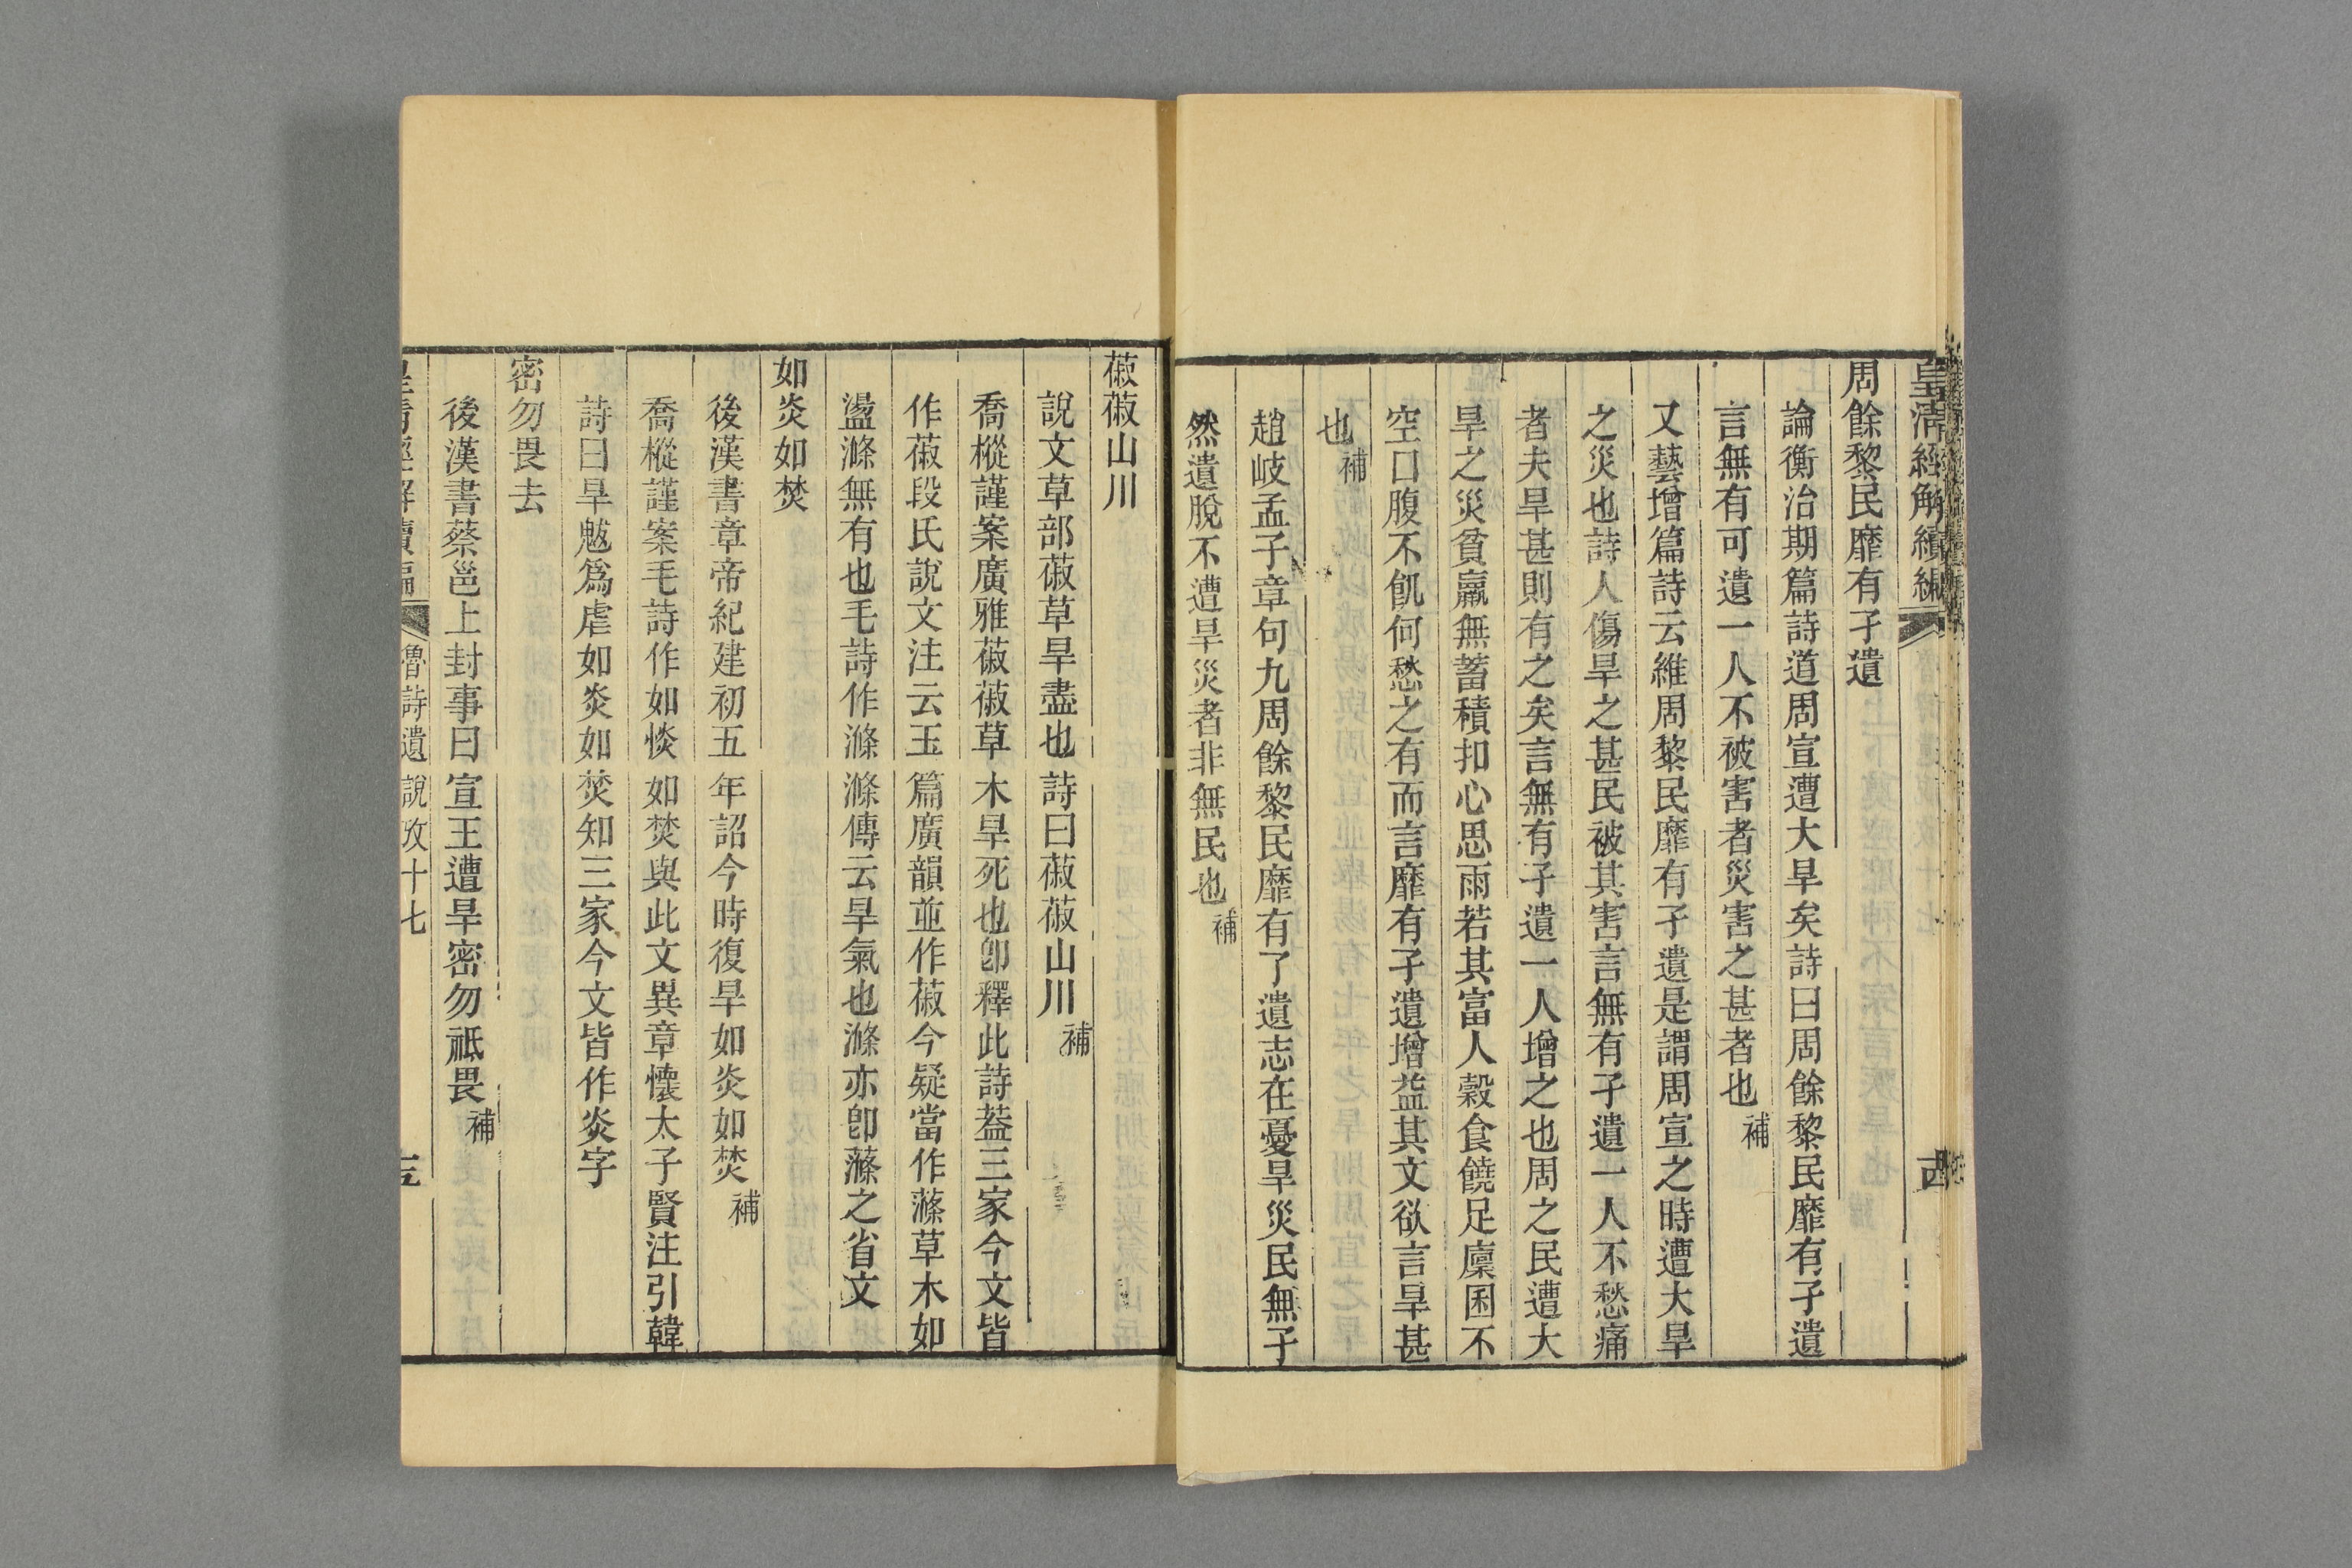 皇清經解續編
周餘黎民靡有孑遺
論衡治期篇詩道周宣遭大旱矣詩曰周餘黎民靡有孑遺
言無有可遺一人不被害者災害之甚者也補
又藝增篇詩云維周黎民靡有孑遺是謂周宣之時遭大旱
之災也詩人傷旱之甚民被其害言無有孑遺一人不愁痛
者夫旱甚則有之矣言無有孑遺一人增之也周之民遭大
旱之災貧羸無蓄積扣心思雨若其富人穀食饒足廩囷不
空口腹不飢何愁之有而言靡有孑遺增益其文欲言旱甚
也補
趙岐孟子章句九周餘黎民靡有了遺志在憂旱災民無孑
然遺脫不遭旱災者非無民也補
蔋蔋山川
說文草部蔋草旱盡也詩曰蔋蔋山川補
喬樅謹案廣雅蔋蔋草木旱死也卽釋此詩葢三家今文皆
作蔋段氏說文注云玉篇廣韻並作蔋今疑當作藗草木如
盪滌無有也毛詩作滌滌傳云旱氣也滌亦卽蔋之省文
如炎如焚
後漢書章帝紀建初五年詔今時復旱如炎如焚補
喬樅謹案毛詩作如惔如焚與此文異章懷太子賢注引韓
詩曰旱魃爲虐如炎如焚知三家今文皆作炎字
密勿畏去
後漢書蔡邕上封事曰宣王遭旱密勿祗畏補
皇清經解續編 魯詩遺說攷十七